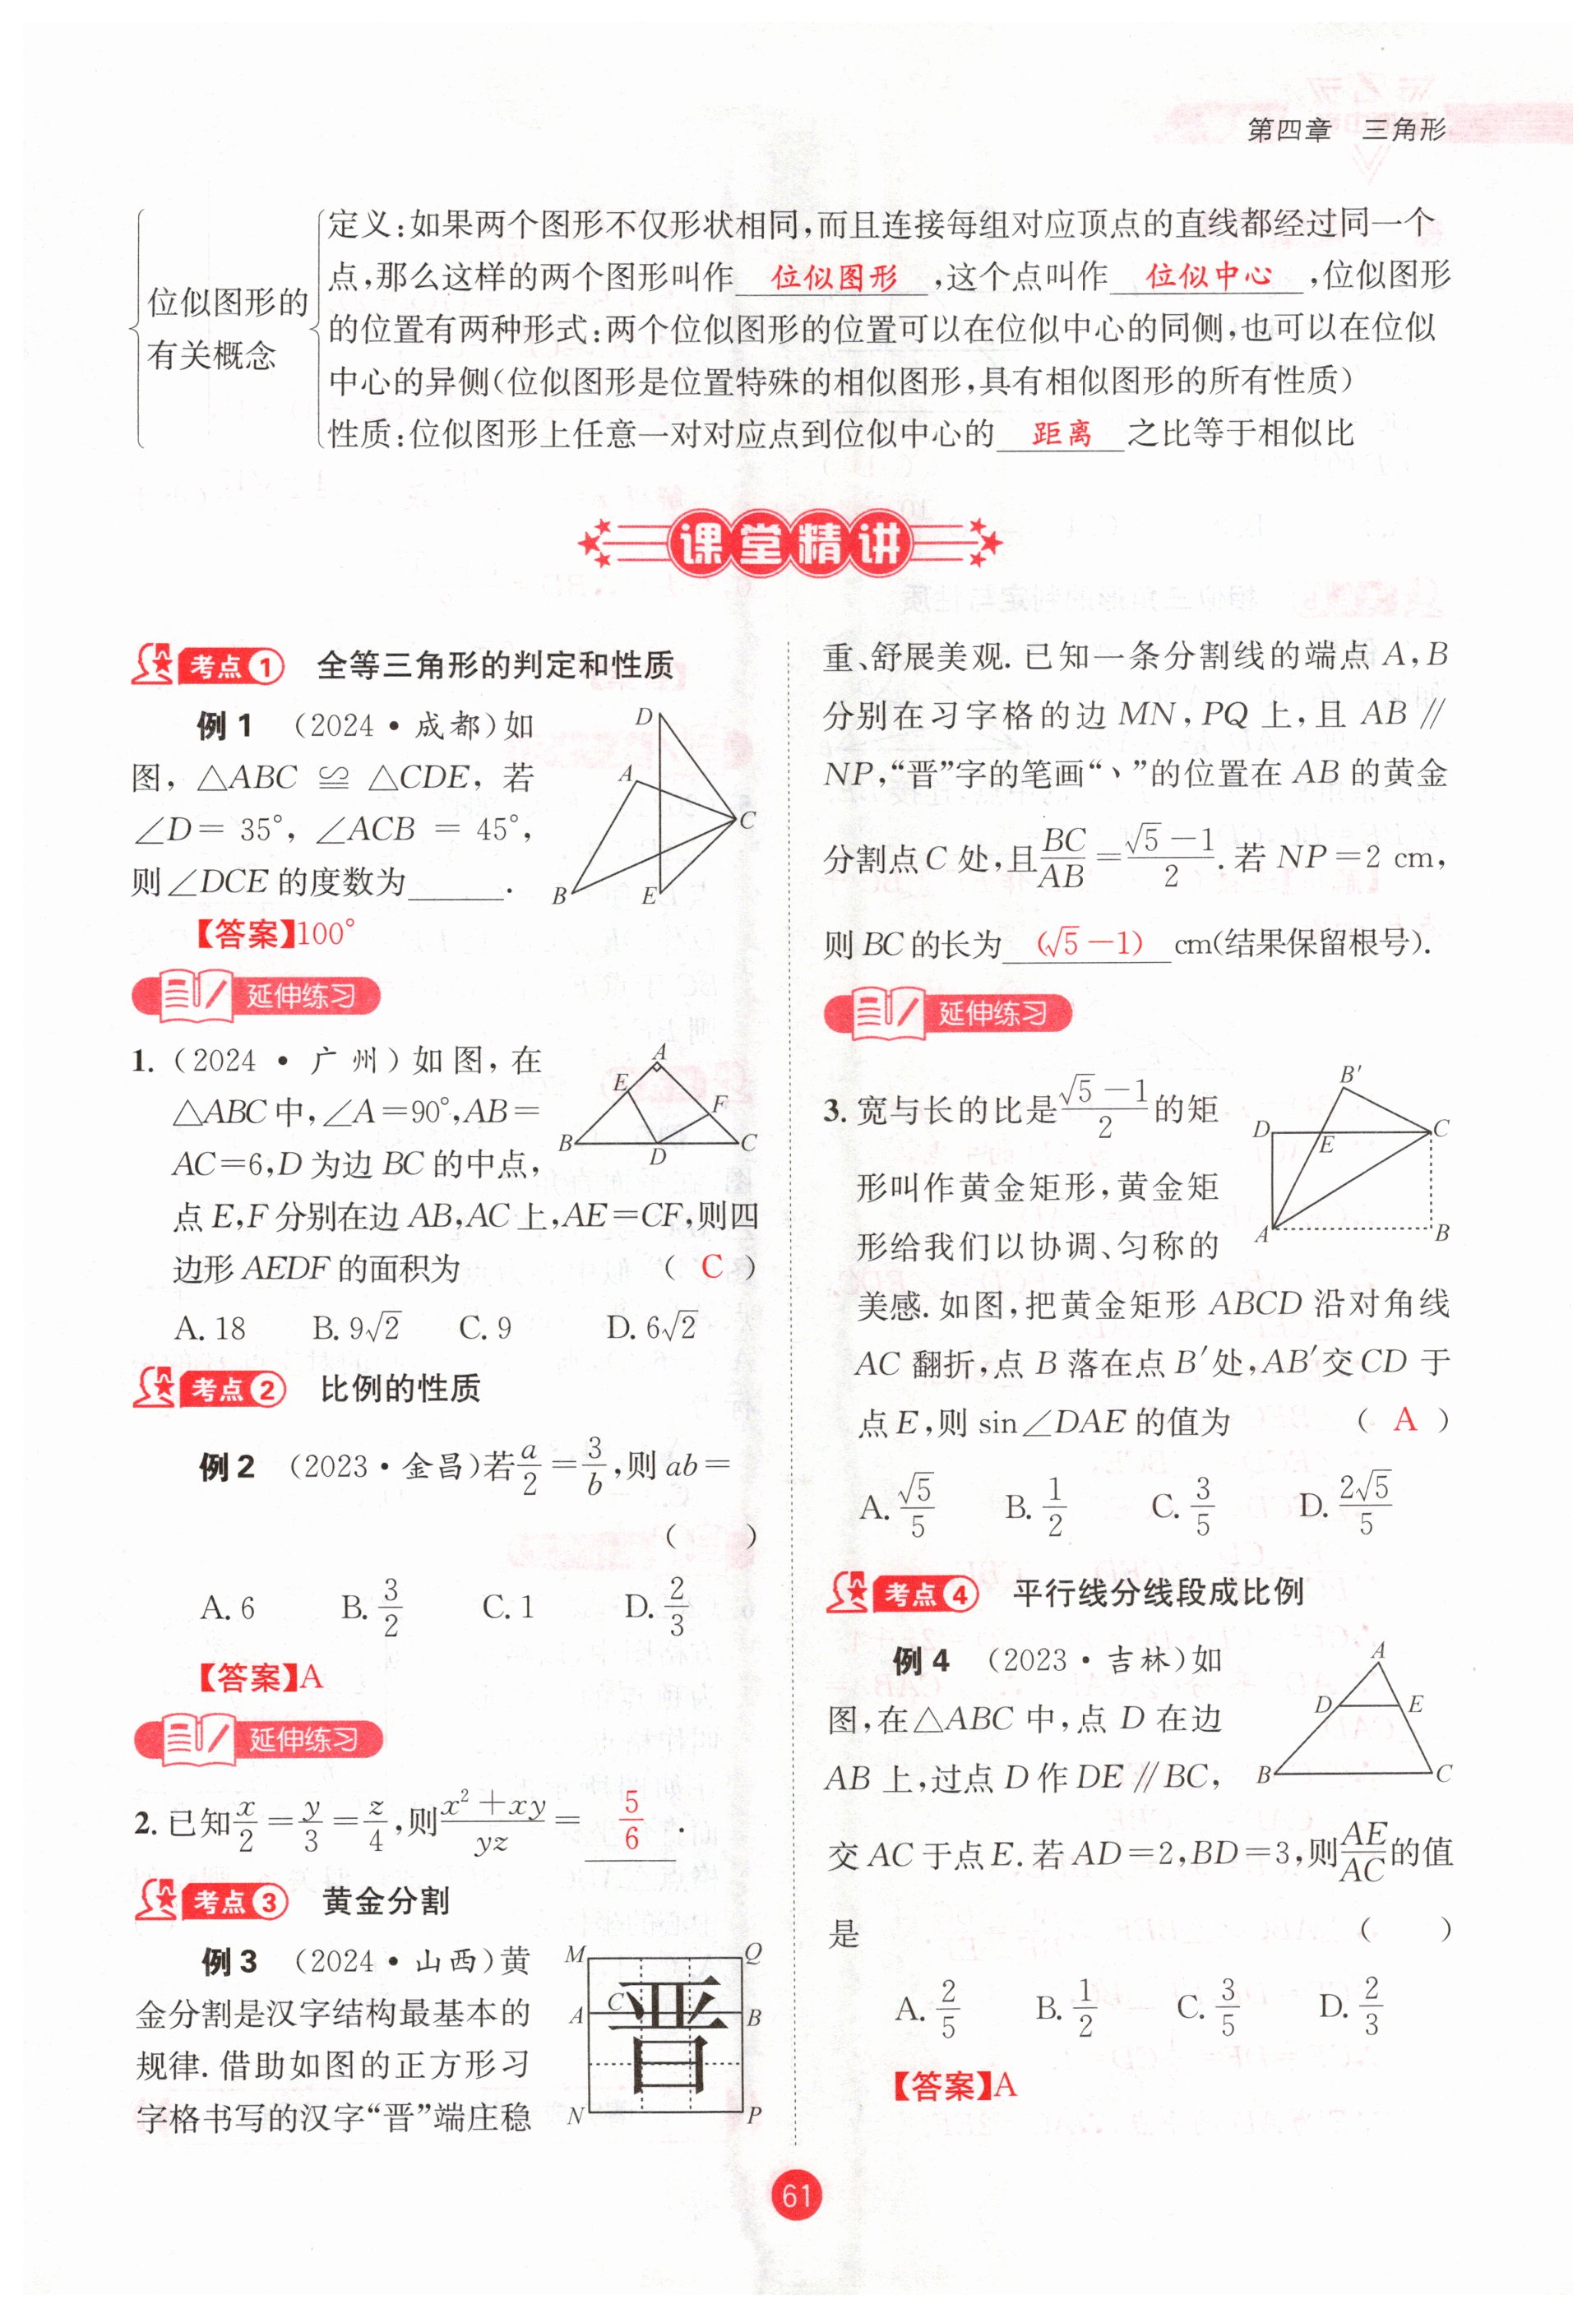 第四章 三角形
位似图形的
有关概念
定义:如果两个图形不仅形状相同,而且连接每组对应顶点的直线都经过同一个
点,那么这样的两个图形叫作 位似图形 ,这个点叫作 位似中心 ,位似图形
的位置有两种形式:两个位似图形的位置可以在位似中心的同侧,也可以在位似
中心的异侧(位似图形是位置特殊的相似图形,具有相似图形的所有性质)
性质:位似图形上任意一对对应点到位似中心的 距离 之比等于相似比
课堂精讲
考点1 全等三角形的判定和性质
例1 (2024·成都)如
图,△ABC ≌ △CDE,若
∠D= 35°,∠ACB = 45°,
则∠DCE的度数为______.
D
A
C
B
E
【答案】100°
延伸练习
1.(2024·广州)如图,在
△ABC中,∠A=90°,AB=
AC=6,D为边BC的中点,
点E,F分别在边AB,AC上,AE=CF,则四
边形AEDF的面积为 ( C )
A
E
F
B
D
C
A. 18 B. 9√2 C. 9 D. 6√2
考点2 比例的性质
例2 (2023·金昌)若a/2=3/b,则ab=
( )
A. 6 B. 3/2 C. 1 D. 2/3
【答案】A
延伸练习
2. 已知x/2=y/3=z/4,则(x²+xy)/yz= 5/6 .
考点3 黄金分割
例3 (2024·山西)黄
金分割是汉字结构最基本的
规律. 借助如图的正方形习
字格书写的汉字“晋”端庄稳
M
Q
C
A
B
晋
N
P
重、舒展美观. 已知一条分割线的端点A,B
分别在习字格的边MN,PQ上,且AB∥
NP,“晋”字的笔画“丶”的位置在AB的黄金
分割点C处,且BC/AB=(√5-1)/2. 若NP=2 cm,
则BC的长为 (√5-1) cm(结果保留根号).
延伸练习
3. 宽与长的比是(√5-1)/2的矩
形叫作黄金矩形,黄金矩
形给我们以协调、匀称的
美感. 如图,把黄金矩形ABCD沿对角线
AC翻折,点B落在点B′处,AB′交CD于
点E,则sin∠DAE的值为 ( A )
B′
D
C
E
A
B
A. √5/5 B. 1/2 C. 3/5 D. 2√5/5
考点4 平行线分线段成比例
例4 (2023·吉林)如
图,在△ABC中,点D在边
AB上,过点D作DE∥BC,
交AC于点E. 若AD=2,BD=3,则AE/AC的值
是 ( )
A
D
E
B
C
A. 2/5 B. 1/2 C. 3/5 D. 2/3
【答案】A
61